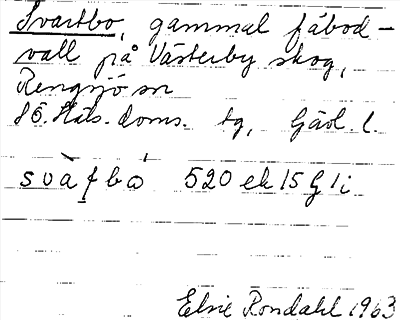 Svartbo, gammal fäbod-
vall på Västerby skog,
Rengsjö sn
Häls. doms. tg, Gävl. l.
520 ek 15 G 1 i
Elsie Rondahl 1963